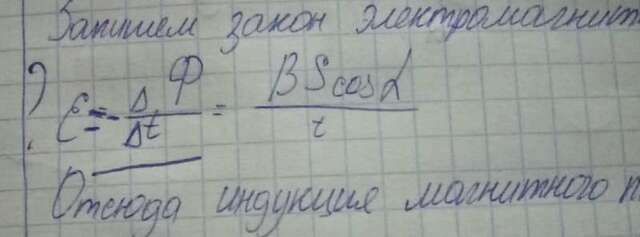 Запишем закон электромагнит
? ℰ = - ΔФ/Δt = BScosα/t
Отсюда индукция магнитного п